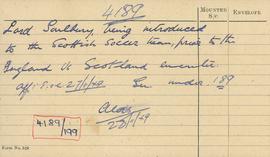 4189
MOUNTED
S/C
ENVELOPE
Lord Soulbury being introduced
to the Scottish Soccer team, prior to the
England Vs Scotland encounter.
27/1/49 under 189
28/1/49
4189/199
Form No. 528